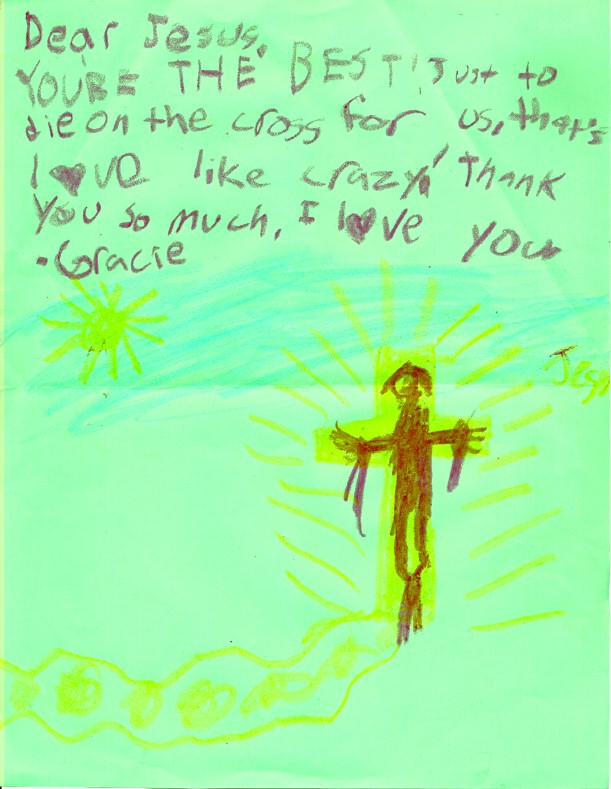 Dear Jesus,
YOURE THE BEST! Just to
die on the cross for us, that's
l♥ve like crazy! Thank
You so much, I l♥ve you
-Gracie